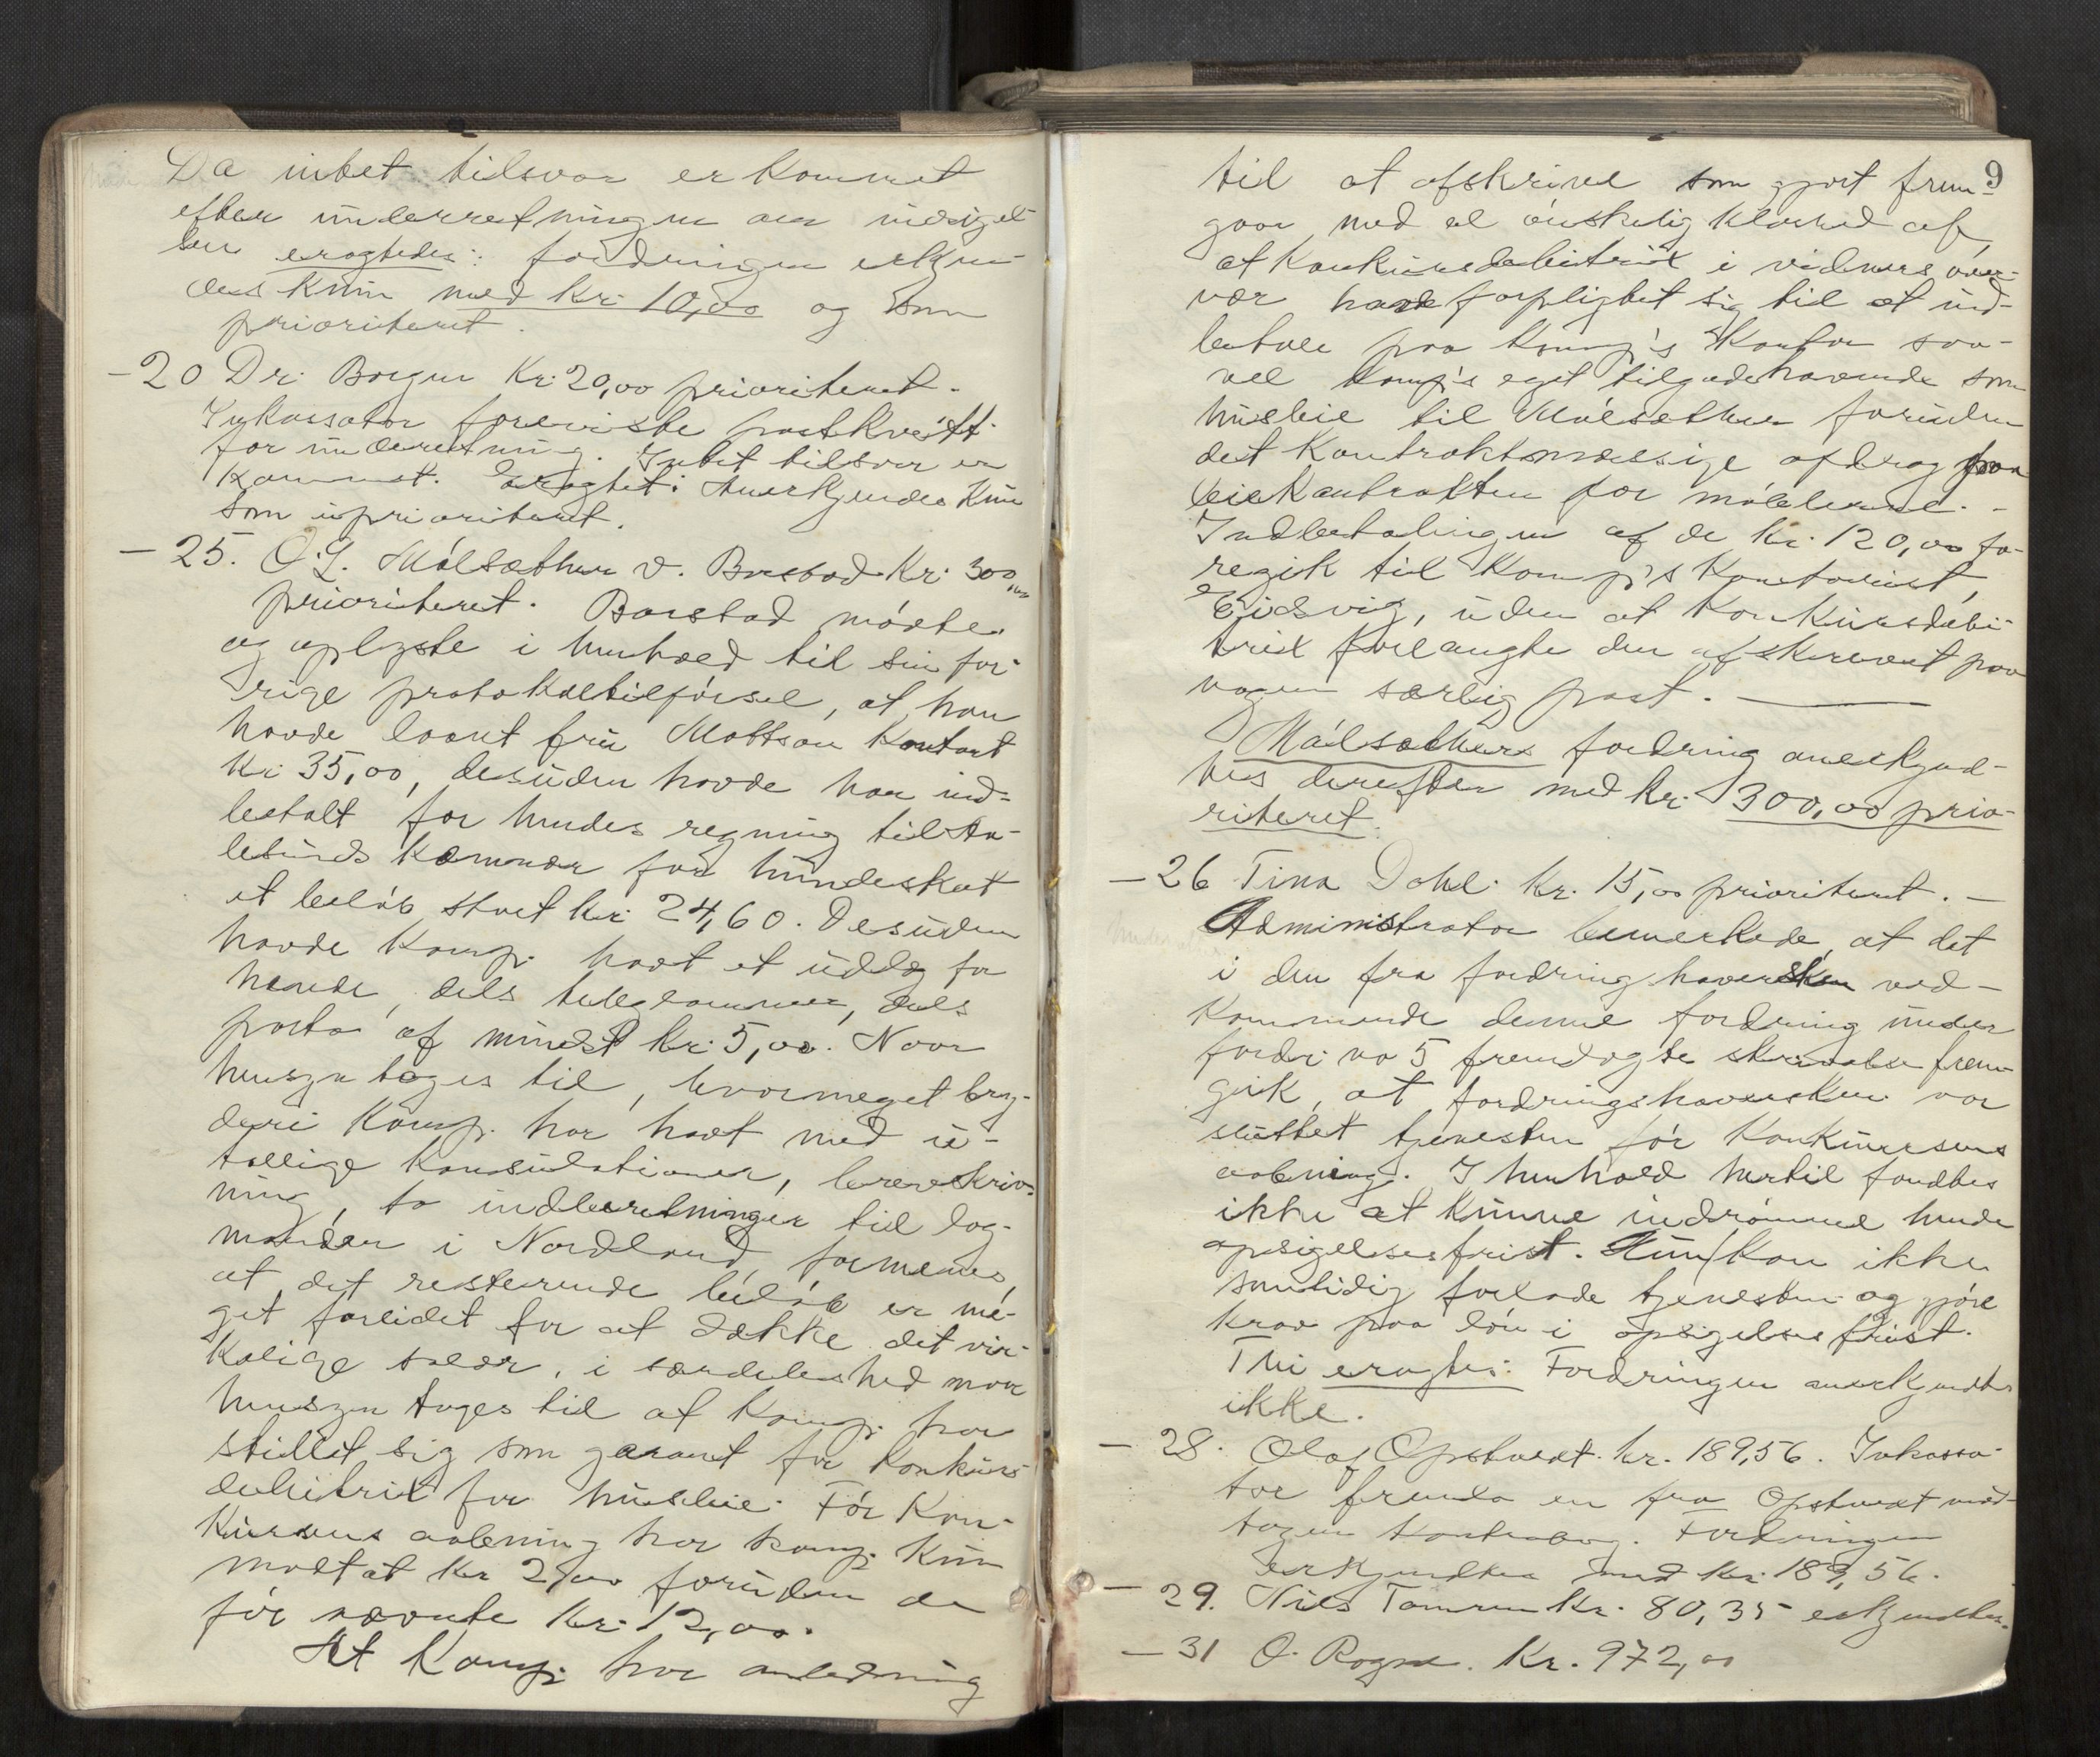 Da intet tilsvar er kommet
efter underretningen om indsigel-
sen eragtedes: fordringen erkjen-
des kun med kr. 10,00 og som
prioriteret.
- 20 Dr. Borgen Kr. 20,00 prioriteret.
Inkassator foreviste postkvitt.
for underretning. Intet tilsvar er
kommet. Eragtet: Anerkjendes kun
som uprioriteret.
- 25. O. L. Mólsæther v. Borstad Kr. 300,00
prioriteret. Borstad mødte
og oplyste i henhold til sin for-
rige protokoltilførsel, at han
havde laant fru Mattson kontant
kr. 35,00, desuden havde han ind-
betalt for hendes regning til Aa-
lesunds kæmner for hundeskat
et beløb stort kr. 24,60. Desuden
havde komp. havt et udlæg for
hende, dels telegrammer, dels
porto af mindst kr. 5,00. Naar
hensyn tages til, hvormeget bry-
deri komp. har havt med u-
tallige konsulationer, brevskriv-
ning, to indberetninger til lag-
manden i Nordland, formenes,
at det resterende beløb er me-
get forlidet for at dække det vir-
kelige salær, i særdeleshed naar
hensyn tages til at komp. har
stillet sig som garant for konkurs-
debitrix for husleie. Før kon-
kursens aabning har komp. kun
modtat kr 2,00 foruden de
før nævnte kr. 12,00.
At komp. har anledning
9
til at afskrive som gjort frem-
gaar med al ønskelig klarhed af,
at konkursdebitrix i vidners over-
vær havde forpligtet sig til at ind-
betale paa komp's kontor saa-
vel komp's eget tilgodehavende som
husleie til Mólsæther foruden
det kontraktsmæssige afdrag paa
leiekontrakten for møblerne. -
Indbetalingen af de kr. 120,00 fo-
regik til komp's kontorist,
Eidsvig, uden at konkursdebi-
trix forlangte den afskrevet paa
nogen særlig post. -
Mólsæthers fordring anerkjend-
tes derefter med kr. 300,00 prio-
riteret.
- 26 Tina Dahl. kr. 15,00 prioriteret. -
Administrator bemerkede, at det
i den fra fordringshaversken ved-
kommende denne fordring under
fordr. no 5 fremlagte skrivelse frem-
gik, at fordringshaversken var
sluttet tjenesten før konkursens
aabning. I henhold hertil fandtes
ikke at kunne indrømme hende
opsigelsesfrist. Hun kan ikke
samtidig forlade tjenesten og gjøre
krav paa løn i opsigelsesfrist.
Thi eragtes: Fordringen anerkjendtes
ikke.
- 28. Olaf Opstvedt. kr. 189,56. Inkassa-
tor fremla en fra Opstvedt mod-
tagen kontrabog. Fordringen
erkjendtes med kr. 189,56.
- 29. Nils Tomren kr. 80,35 erkjendtes.
- 31 O. Rogne. Kr. 972,00